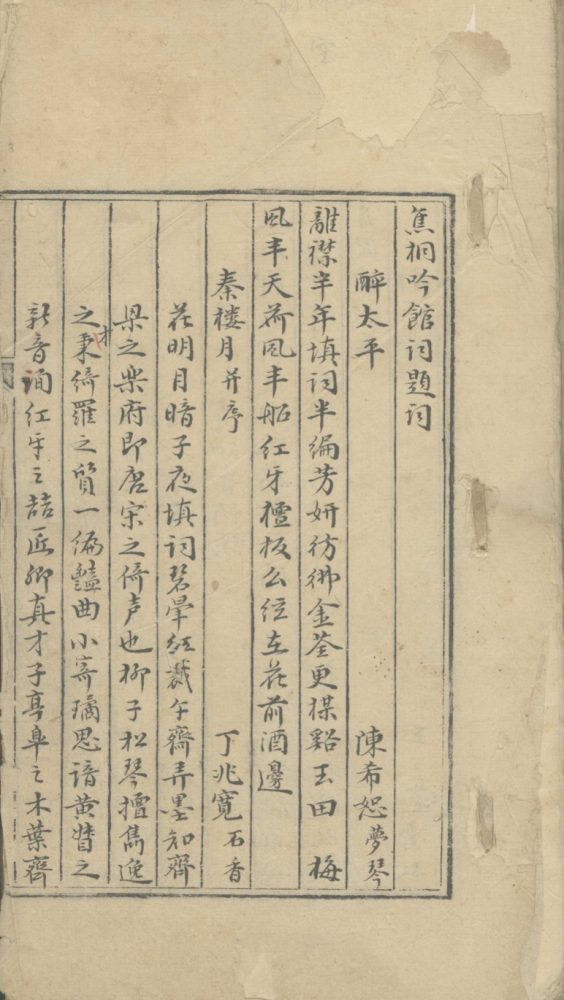 蕉桐吟館词題词
醉太平 陳希恕 夢琴
離襟半年填词半编芳妍彷彿金荃更楳谿玉田 梅
風半天荷風半船紅牙檀板么弦在花前酒邊
秦楼月并序 丁兆寛 石香
花明月暗子夜填词碧暈红裁午齋弄墨知齊
梁之楽府即唐宋之倚声也柳子松琴擅雋逸
之才秉綺羅之質一编豔曲小寄璚思谙黄眥之
新音詞红牙之喆匠卿真才子亭皐之木葉齊